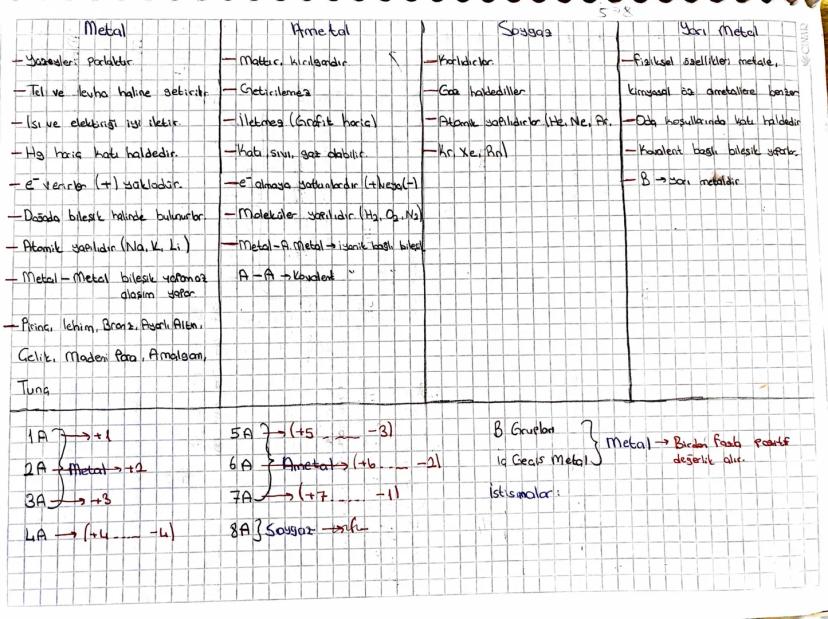 5 8
Metal
- Yüzeyleri parlaktır
- Tel ve levha haline getirilir
- Isı ve elektriği iyi iletir.
- Hg hariç katı haldedir.
- e⁻ verirler (+) yüklüdür.
- Doğada bileşik halinde bulunurlar
- Atomik yapılıdır (Na, K, Li)
- Metal-Metal bileşik yapamaz
alaşım yapar
- Pirinç, lehim, Bronz, Ayarlı Altın,
Çelik, Madeni Para, Amalgam,
Tunç
Ametal
- Mattır, kırılgandır
- Getirilemez
- İletmez (Grafit hariç)
- Katı, sıvı, gaz olabilir.
- e⁻ almaya yatkınlardır (+)veya(-)
- Moleküler yapılıdır. (H2, O2, N2)
- Metal-A.Metal → iyonik bağlı bileşi
A-A → Kovalent "
Soygaz
- Gaz haldediller
- Atomik yapılıdırlar (He, Ne, Ar,
- Kr, Xe, Rn)
Yarı Metal
- Fiziksel özellikleri metale,
kimyasal öz ametallere benzer
- Oda koşullarında katı haldedir
- Kovalent bağlı bileşik yaparlar.
- B → yarı metaldir
1A → +1
2A Metal → +2
3A → +3
4A → (+4 ... -4)
5A → (+5 ... -3)
6A Ametal → (+6 ... -2)
7A → (+7 ... -1)
8A } Soygaz →
B Grupları
iç Geçiş Metal } Metal → Birden fazla pozitif
değerlik alır.
İstisnalar:
ÇINAR